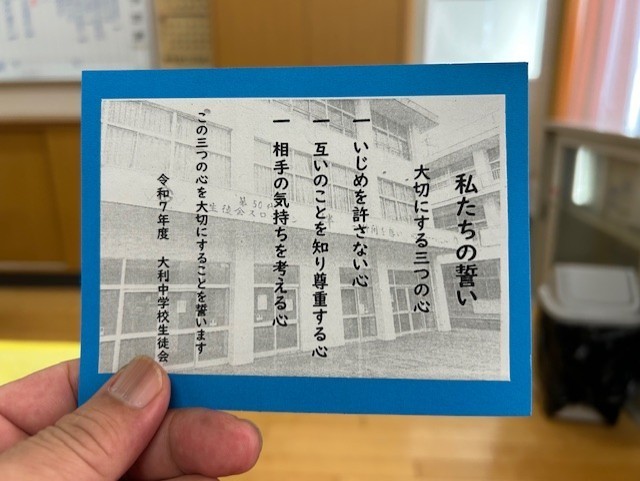 私たちの誓い
大切にする三つの心
一 いじめを許さない心
一 互いのことを知り尊重する心
一 相手の気持ちを考える心
この三つの心を大切にすることを誓います
令和７年度 大利中学校生徒会
第50
生徒会スロ